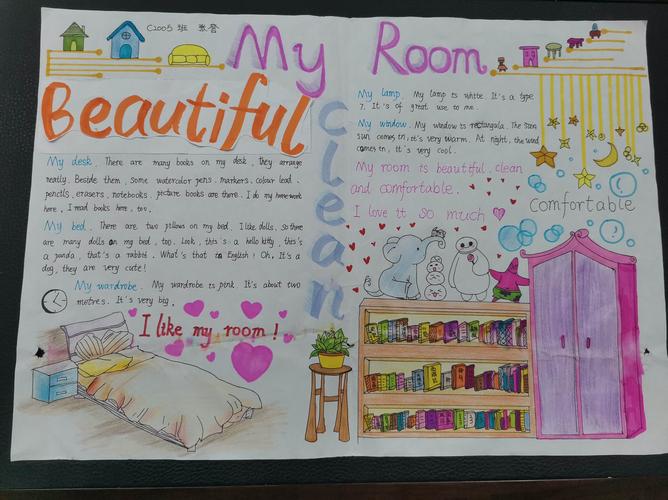 C2005班 张誉
My Room
Beautiful
clean
My desk. There are many books on my desk, they arrange
neatly. Beside them, Some watercolor pens, markers, colour lead
pencils, erasers, notebooks, picture books are there. I do my homework
here, I read books here, too.
My bed. There are two pillows on my bed. I like dolls, so there
are many dolls on my bed, too. Look, this is a hello kitty, this's
a panda, that's a rabbit. What's that in English? Oh, It's a
dog, they are very cute!
My wardrobe. My wardrobe is pink. It's about two
metres. It's very big.
I like my room!
My lamp. My lamp is white. It's a type
7. It's of great use to me.
My window. My window is rectangala. The
sun comes in, it's very warm. At night, the wind
comes in, It's very cool.
My room is beautiful, clean
and comfortable.
I love it so much
Comfortable